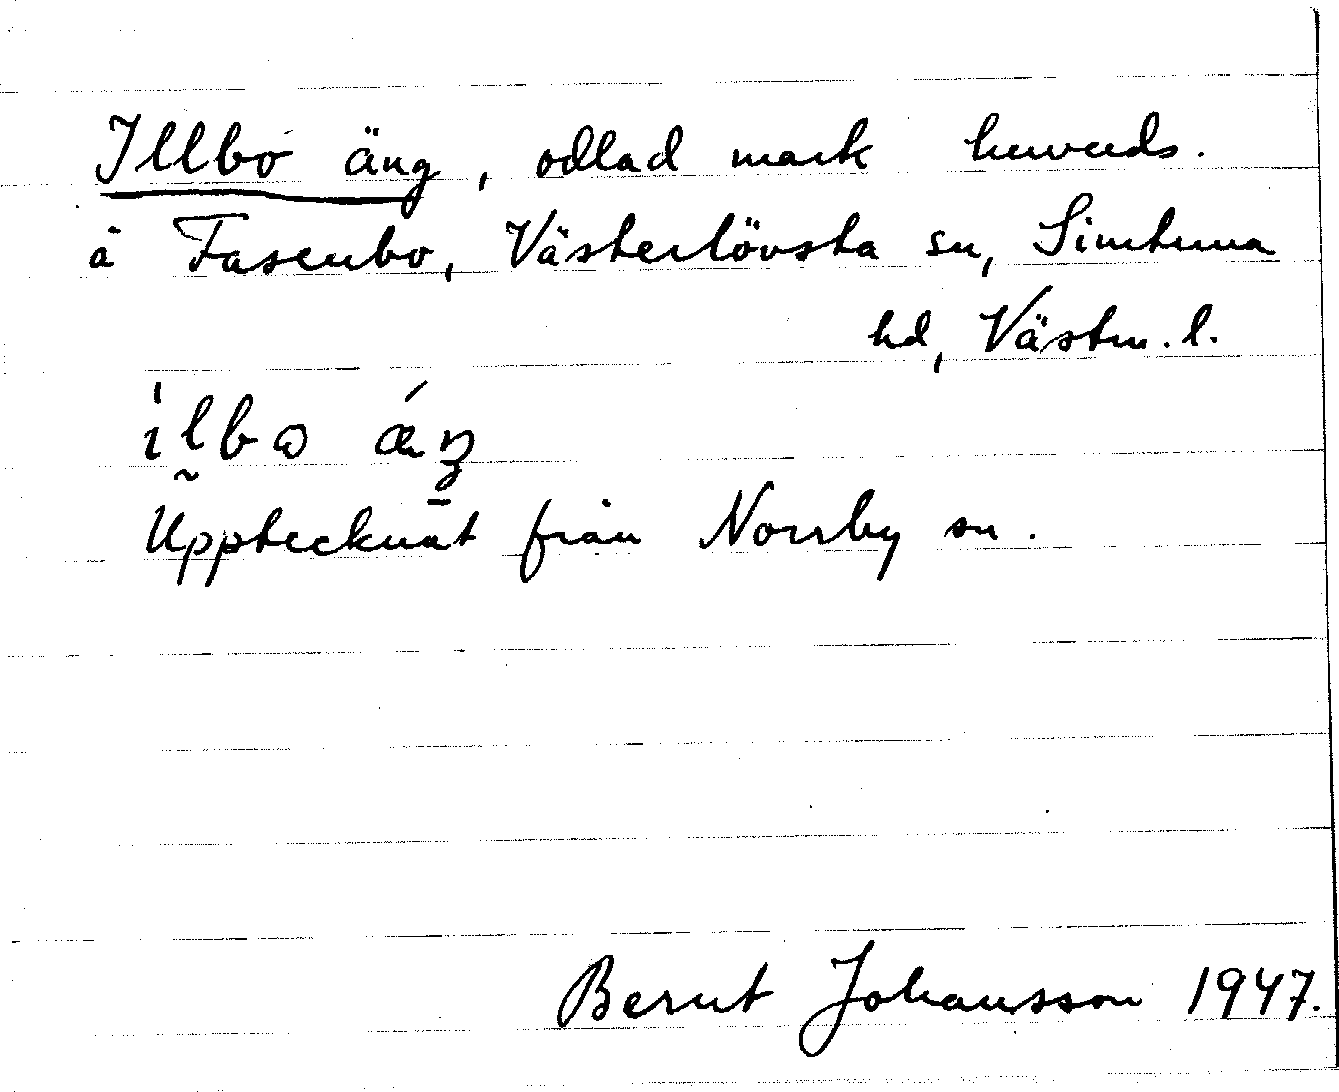 Illbo äng, odlad mark huvuds.
å Fasenbo, Västerlövsta sn, Simtuna
hd, Västm. l.
Upptecknat från Norrby sn.
Bernt Johansson 1947.